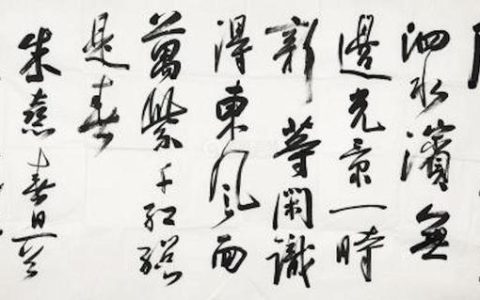 泗水濱無
邊光景一時
新等閑識
得東風面
萬紫千紅總
是春
朱熹春日